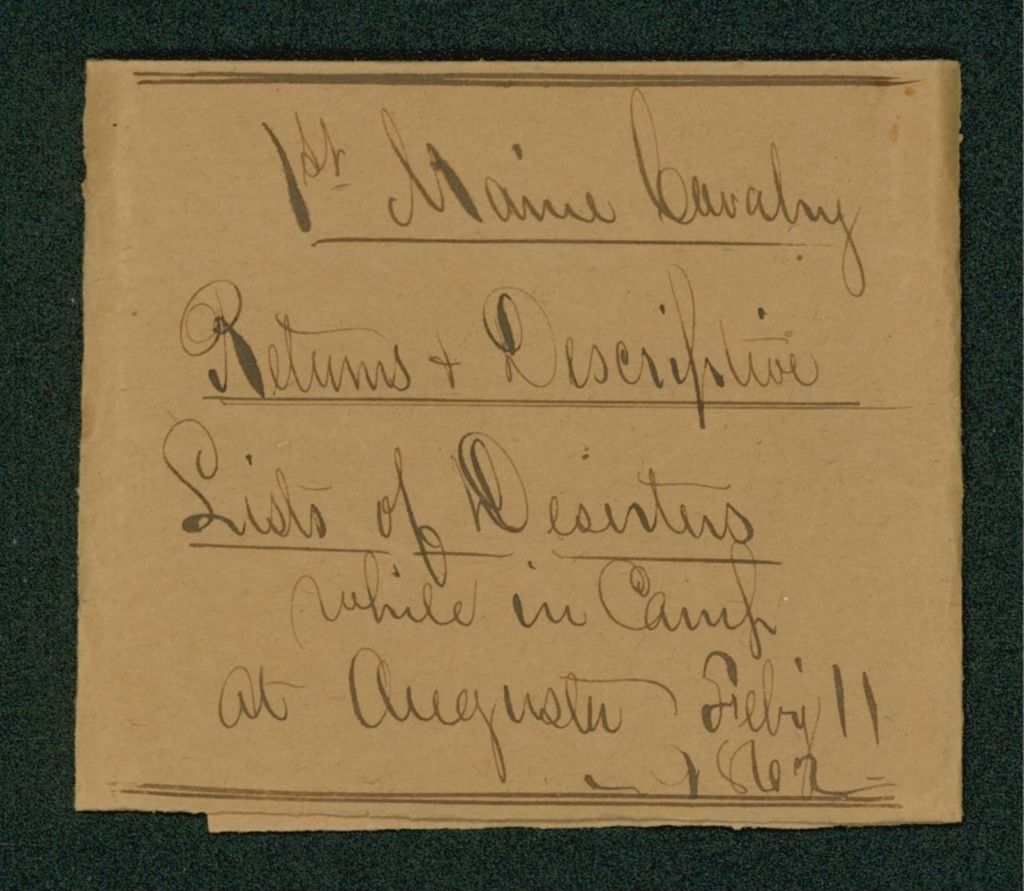 1st Maine Cavalry
Returns + Descriptive
Lists of Deserters
while in Camp
at Augusta Feby 11
1862